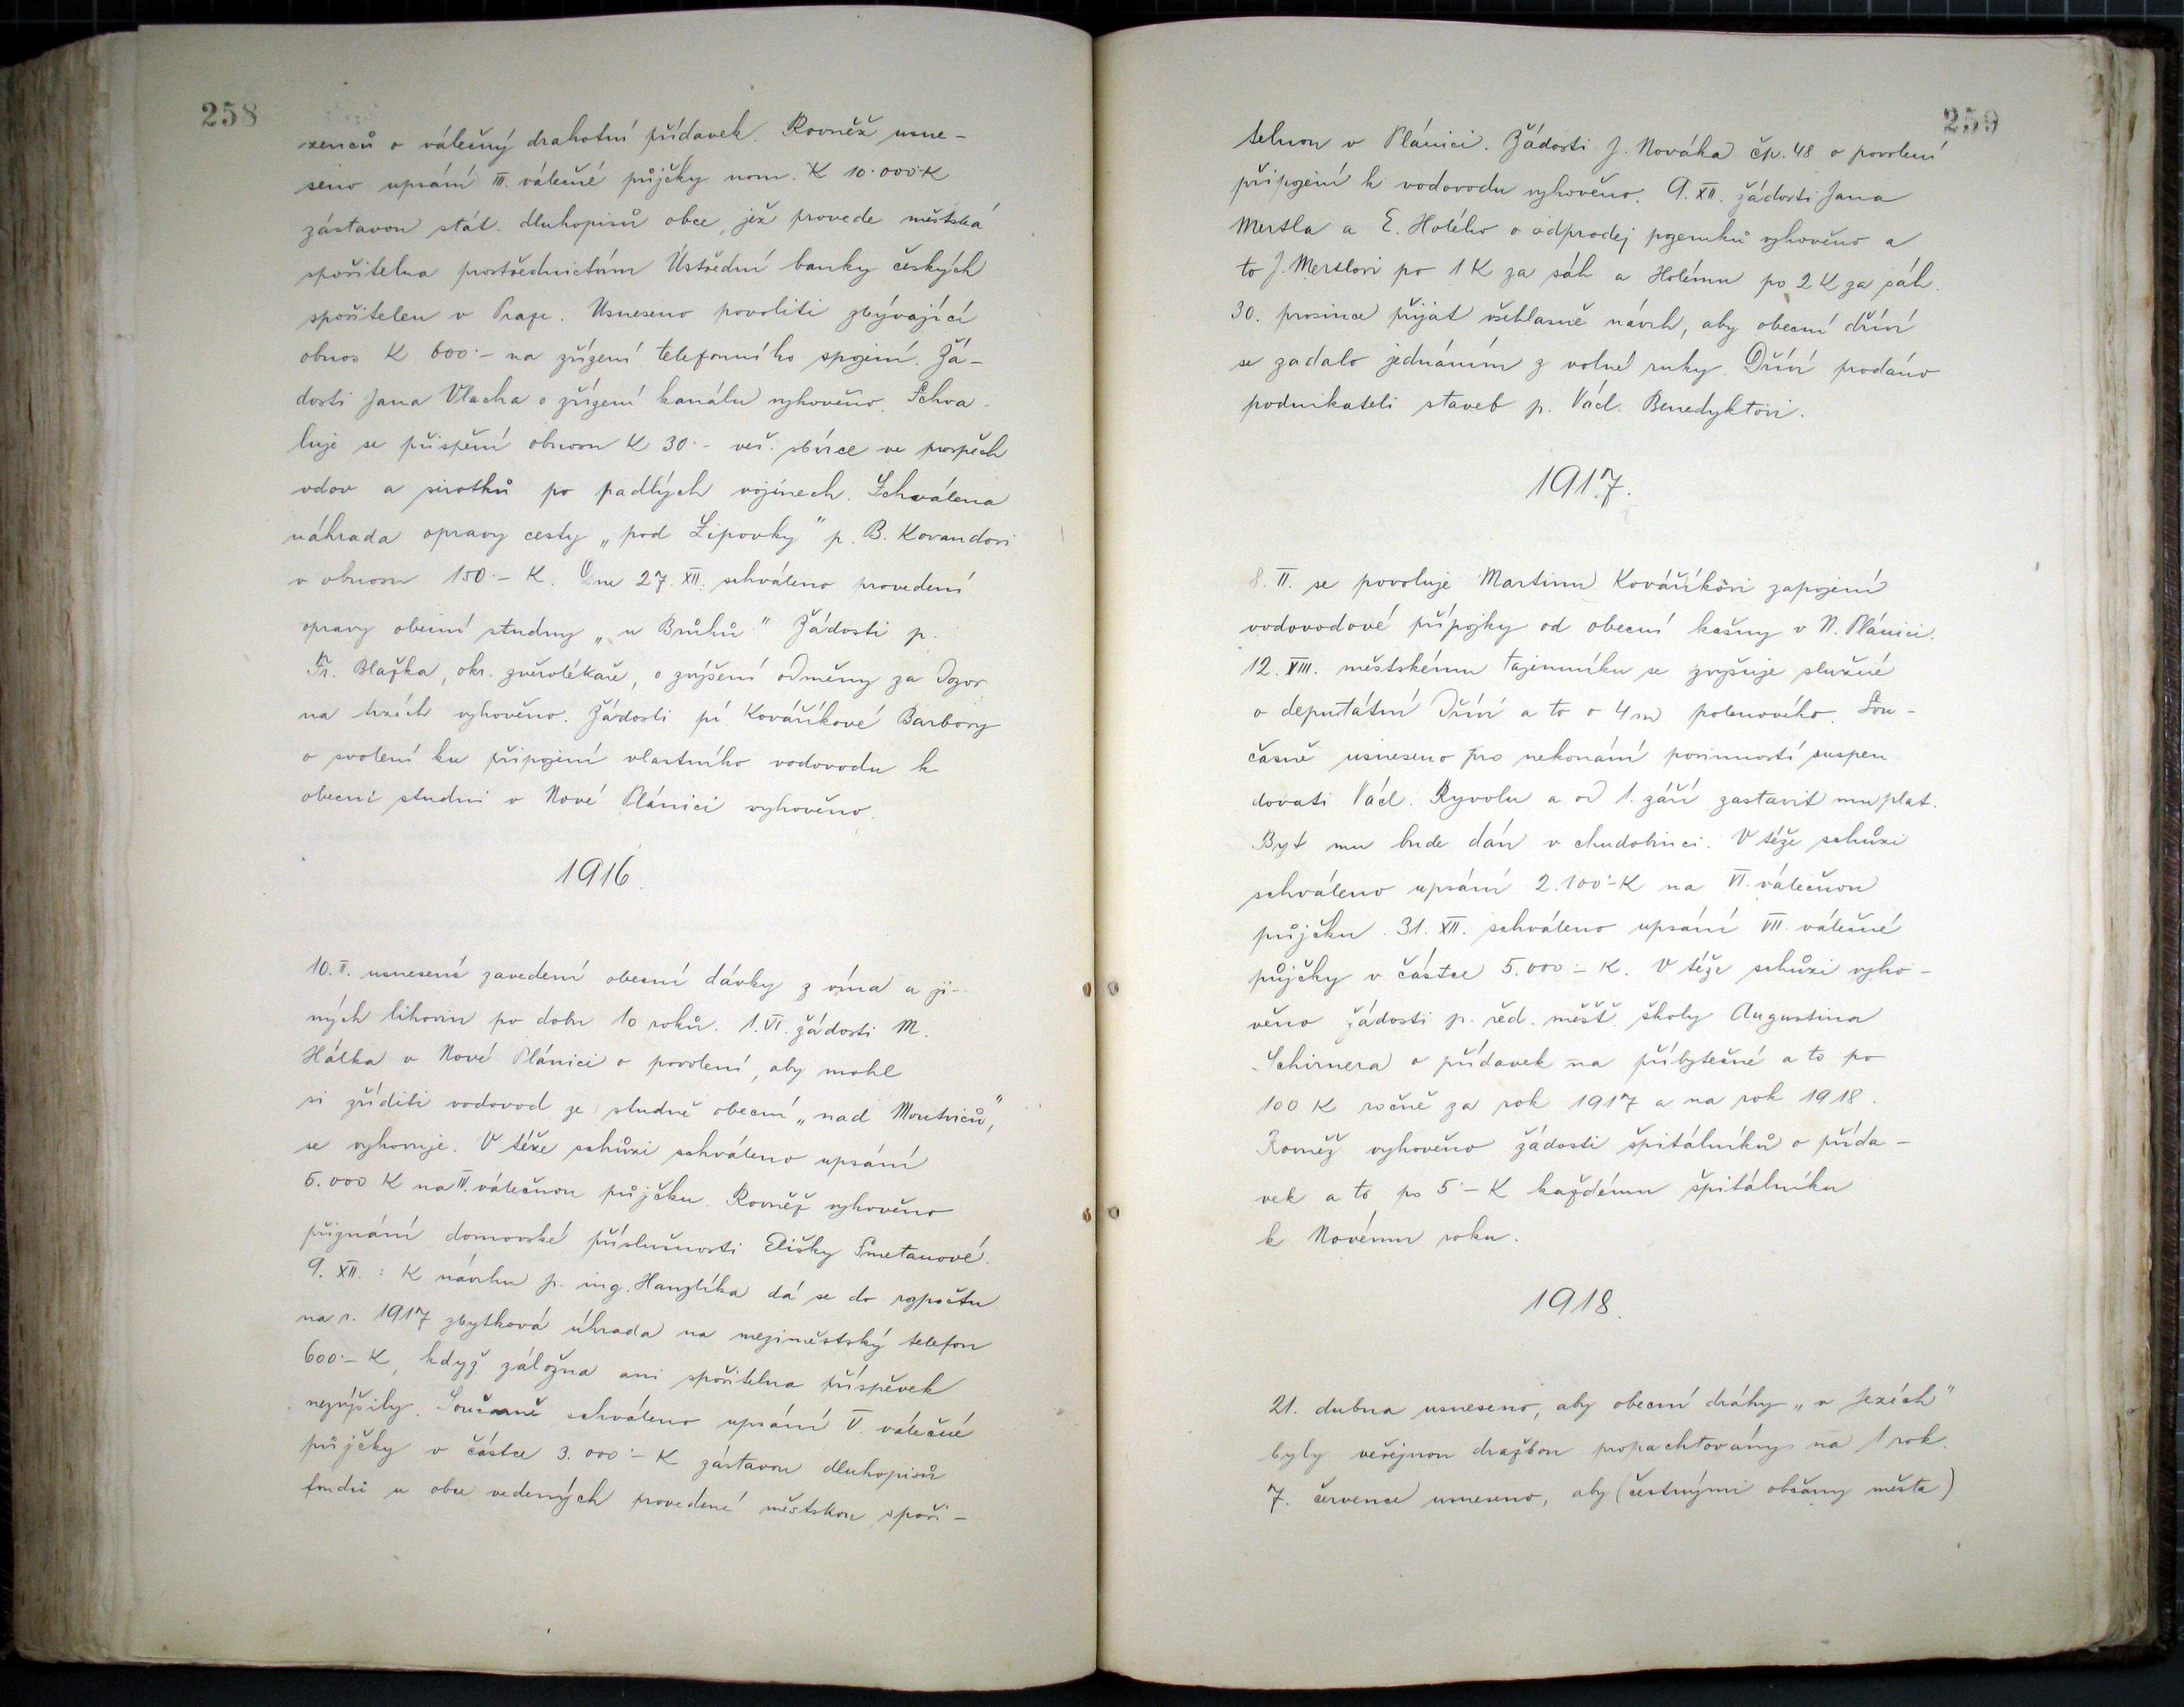 258
zenců o válečný drahotní přídavek. Rovněž usne-
seno upsání III. válečné půjčky nom. K 10.000 K
zástavou stát. dluhopisů obce, jež provede městská
spořitelna prostřednictvím Ústřední banky českých
spořitelen v Praze. Usneseno povoliti zbývající
obnos K 600·- na zřízení telefonního spojení. Žá-
dosti Jana Vlacha o zřízení kanálu vyhověno. Schva-
luje se přispění obnosu K 30·- veř. sbírce ve prospěch
vdov a sirotků po padlých vojínech. Schválena
náhrada opravy cesty „pod Lipovky" p. B. Kovandovi
v obnosu 150·- K. Dne 27. XII. schváleno provedení
opravy obecní studny „u Brůhů" Žádosti p.
Fr. Blažka, okr. zvěrolékaře, o zvýšení odměny za dozor
na trzích vyhověno. Žádosti pí Kováříkové Barbory
o svolení ku připojení vlastního vodovodu k
obecní studni v Nové Plánici vyhověno.
1916.
10. V. usneseno zavedení obecní dávky z vína a ji-
ných lihovin po dobu 10 roků. 1. VI. žádosti M.
Hálka v Nové Plánici o povolení, aby mohl
si zříditi vodovod ze studně obecní „nad Moutviců",
se vyhovuje. V téže schůzi schváleno upsání
5.000 K na IV. válečnou půjčku. Rovněž vyhověno
přiznání domovské příslušnosti Elišky Smetanové.
9. XII.: K návrhu p. ing. Hanzlíka dá se do rozpočtu
na r. 1917 zbytková úhrada na meziměstský telefon
600·- K, když záložna ani spořitelna příspěvek
nezvýšily. Současně schváleno upsání V. válečné
půjčky v částce 3.000·- K zástavou dluhopisů
fondů u obce vedených provedené městskou spoři-
259
telnou v Plánici. Žádosti J. Nováka čp. 48 o povolení
připojení k vodovodu vyhověno. 9. XII. žádosti Jana
Mertla a E. Holého o odprodej pozemků vyhověno a
to J. Mertlovi po 1 K za sáh a Holému po 2 K za sáh.
30. prosince přijat všehlasně návrh, aby obecní dříví
se zadalo jednáním z volné ruky. Dříví prodáno
podnikateli staveb p. Václ. Benedyktovi.
1917.
8. II. se povoluje Martinu Kováříkovi zapojení
vodovodové přípojky od obecní kašny v N. Plánici.
12. VIII. městskému tajemníku se zvyšuje služné
o deputátní dříví a to o 4 m polenového. Sou-
časně usneseno pro nekonání povinností suspen
dovati Václ. Ryvolu a od 1. září zastavit mu plat.
Byt mu bude dán v chudobinci. V téže schůzi
schváleno upsání 2.100·- K na VI. válečnou
půjčku. 31. XII. schváleno upsání VII. válečné
půjčky v částce 5.000·- K. V téže schůzi vyho-
věno žádosti p. řed. měšť. školy Augustina
Schirnera o přídavek na příbytečné a to po
100 K ročně za rok 1917 a na rok 1918.
Rovněž vyhověno žádosti špitálníků o přída-
vek a to po 5·- K každému špitálníku
k Novému roku.
1918.
21. dubna usneseno, aby obecní dráhy „v Jezích"
byly veřejnou dražbou propachtovány na 1 rok.
7. července usneseno, aby (čestnými občany města)